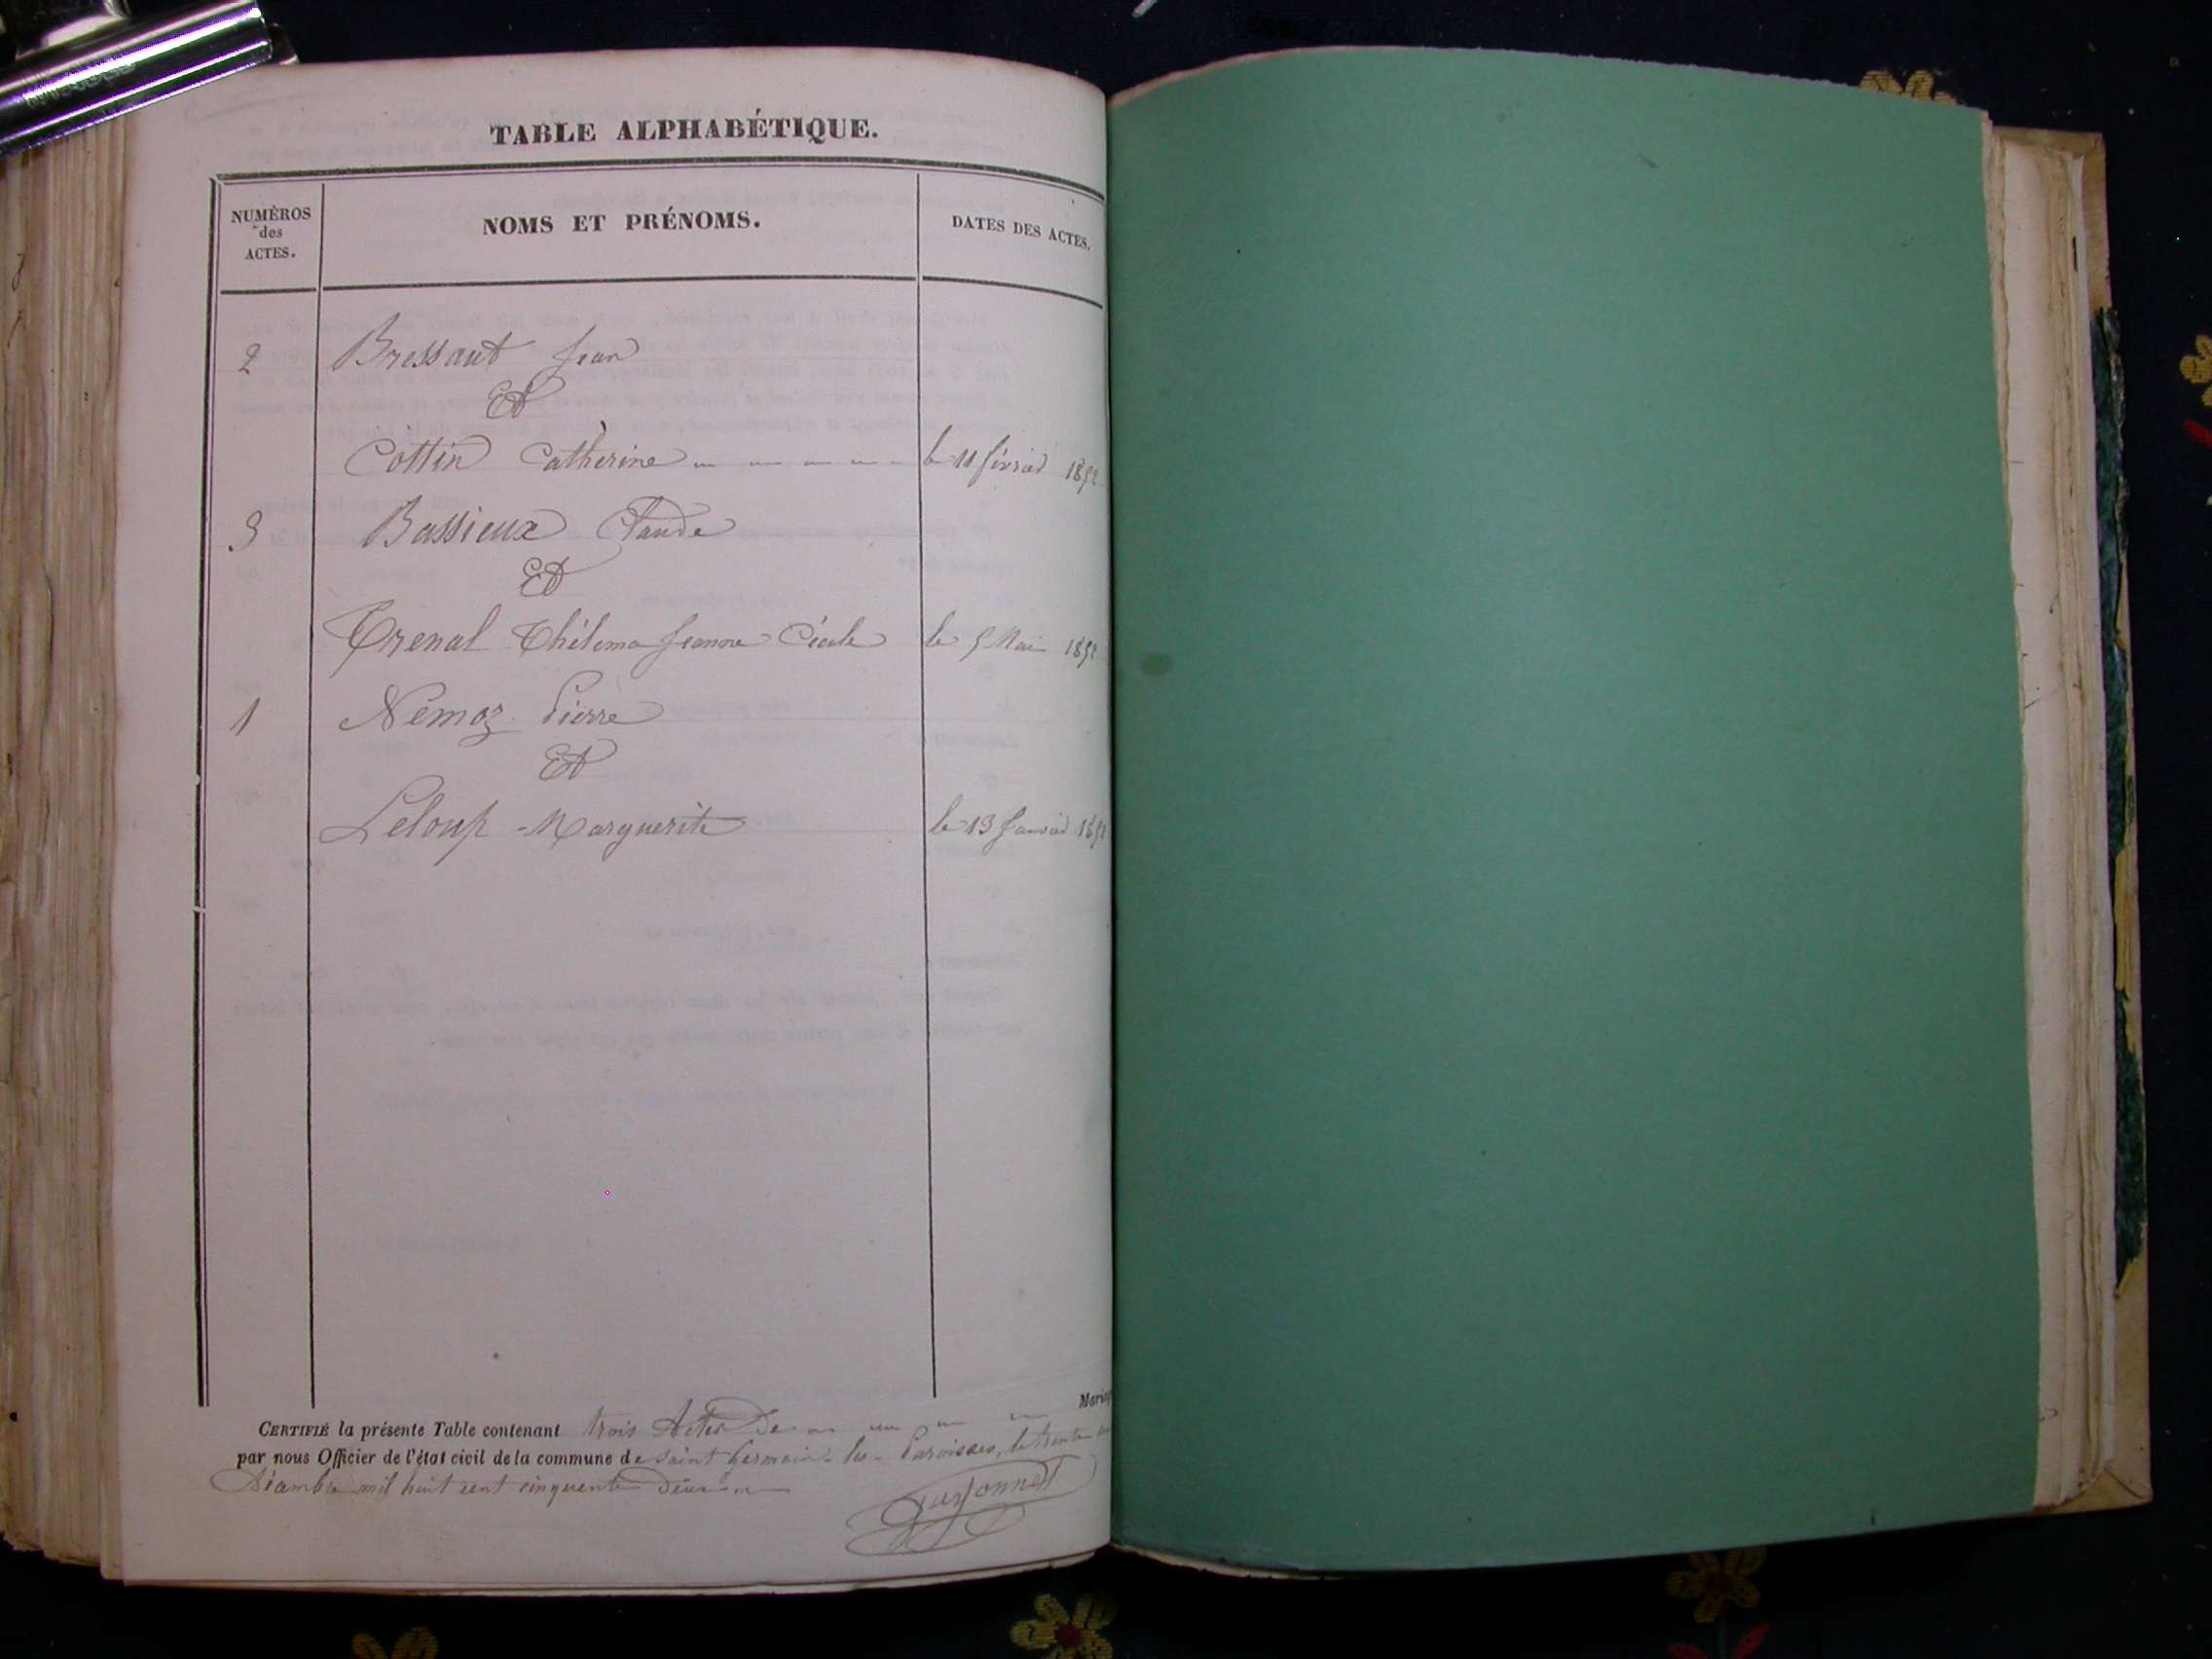 TABLE ALPHABÉTIQUE.
NUMÉROS
des
ACTES.
NOMS ET PRÉNOMS.
DATES DES ACTES.
2 Bressaut Jean
Et
Cottin Catherine le 11 février 1852
3 Bassieux Claude
Et
Trenal Thélema Jeanne Cécile le 5 Mai 1852
1 Nemoz Pierre
Et
Leloup Marguerite le 13 Janvier 1852
Mariag
CERTIFIÉ la présente Table contenant trois Actes De
par nous Officier de l'état civil de la commune de Saint Germain-les-Paroisses, le trente
Décembre mil huit cent cinquante Deux